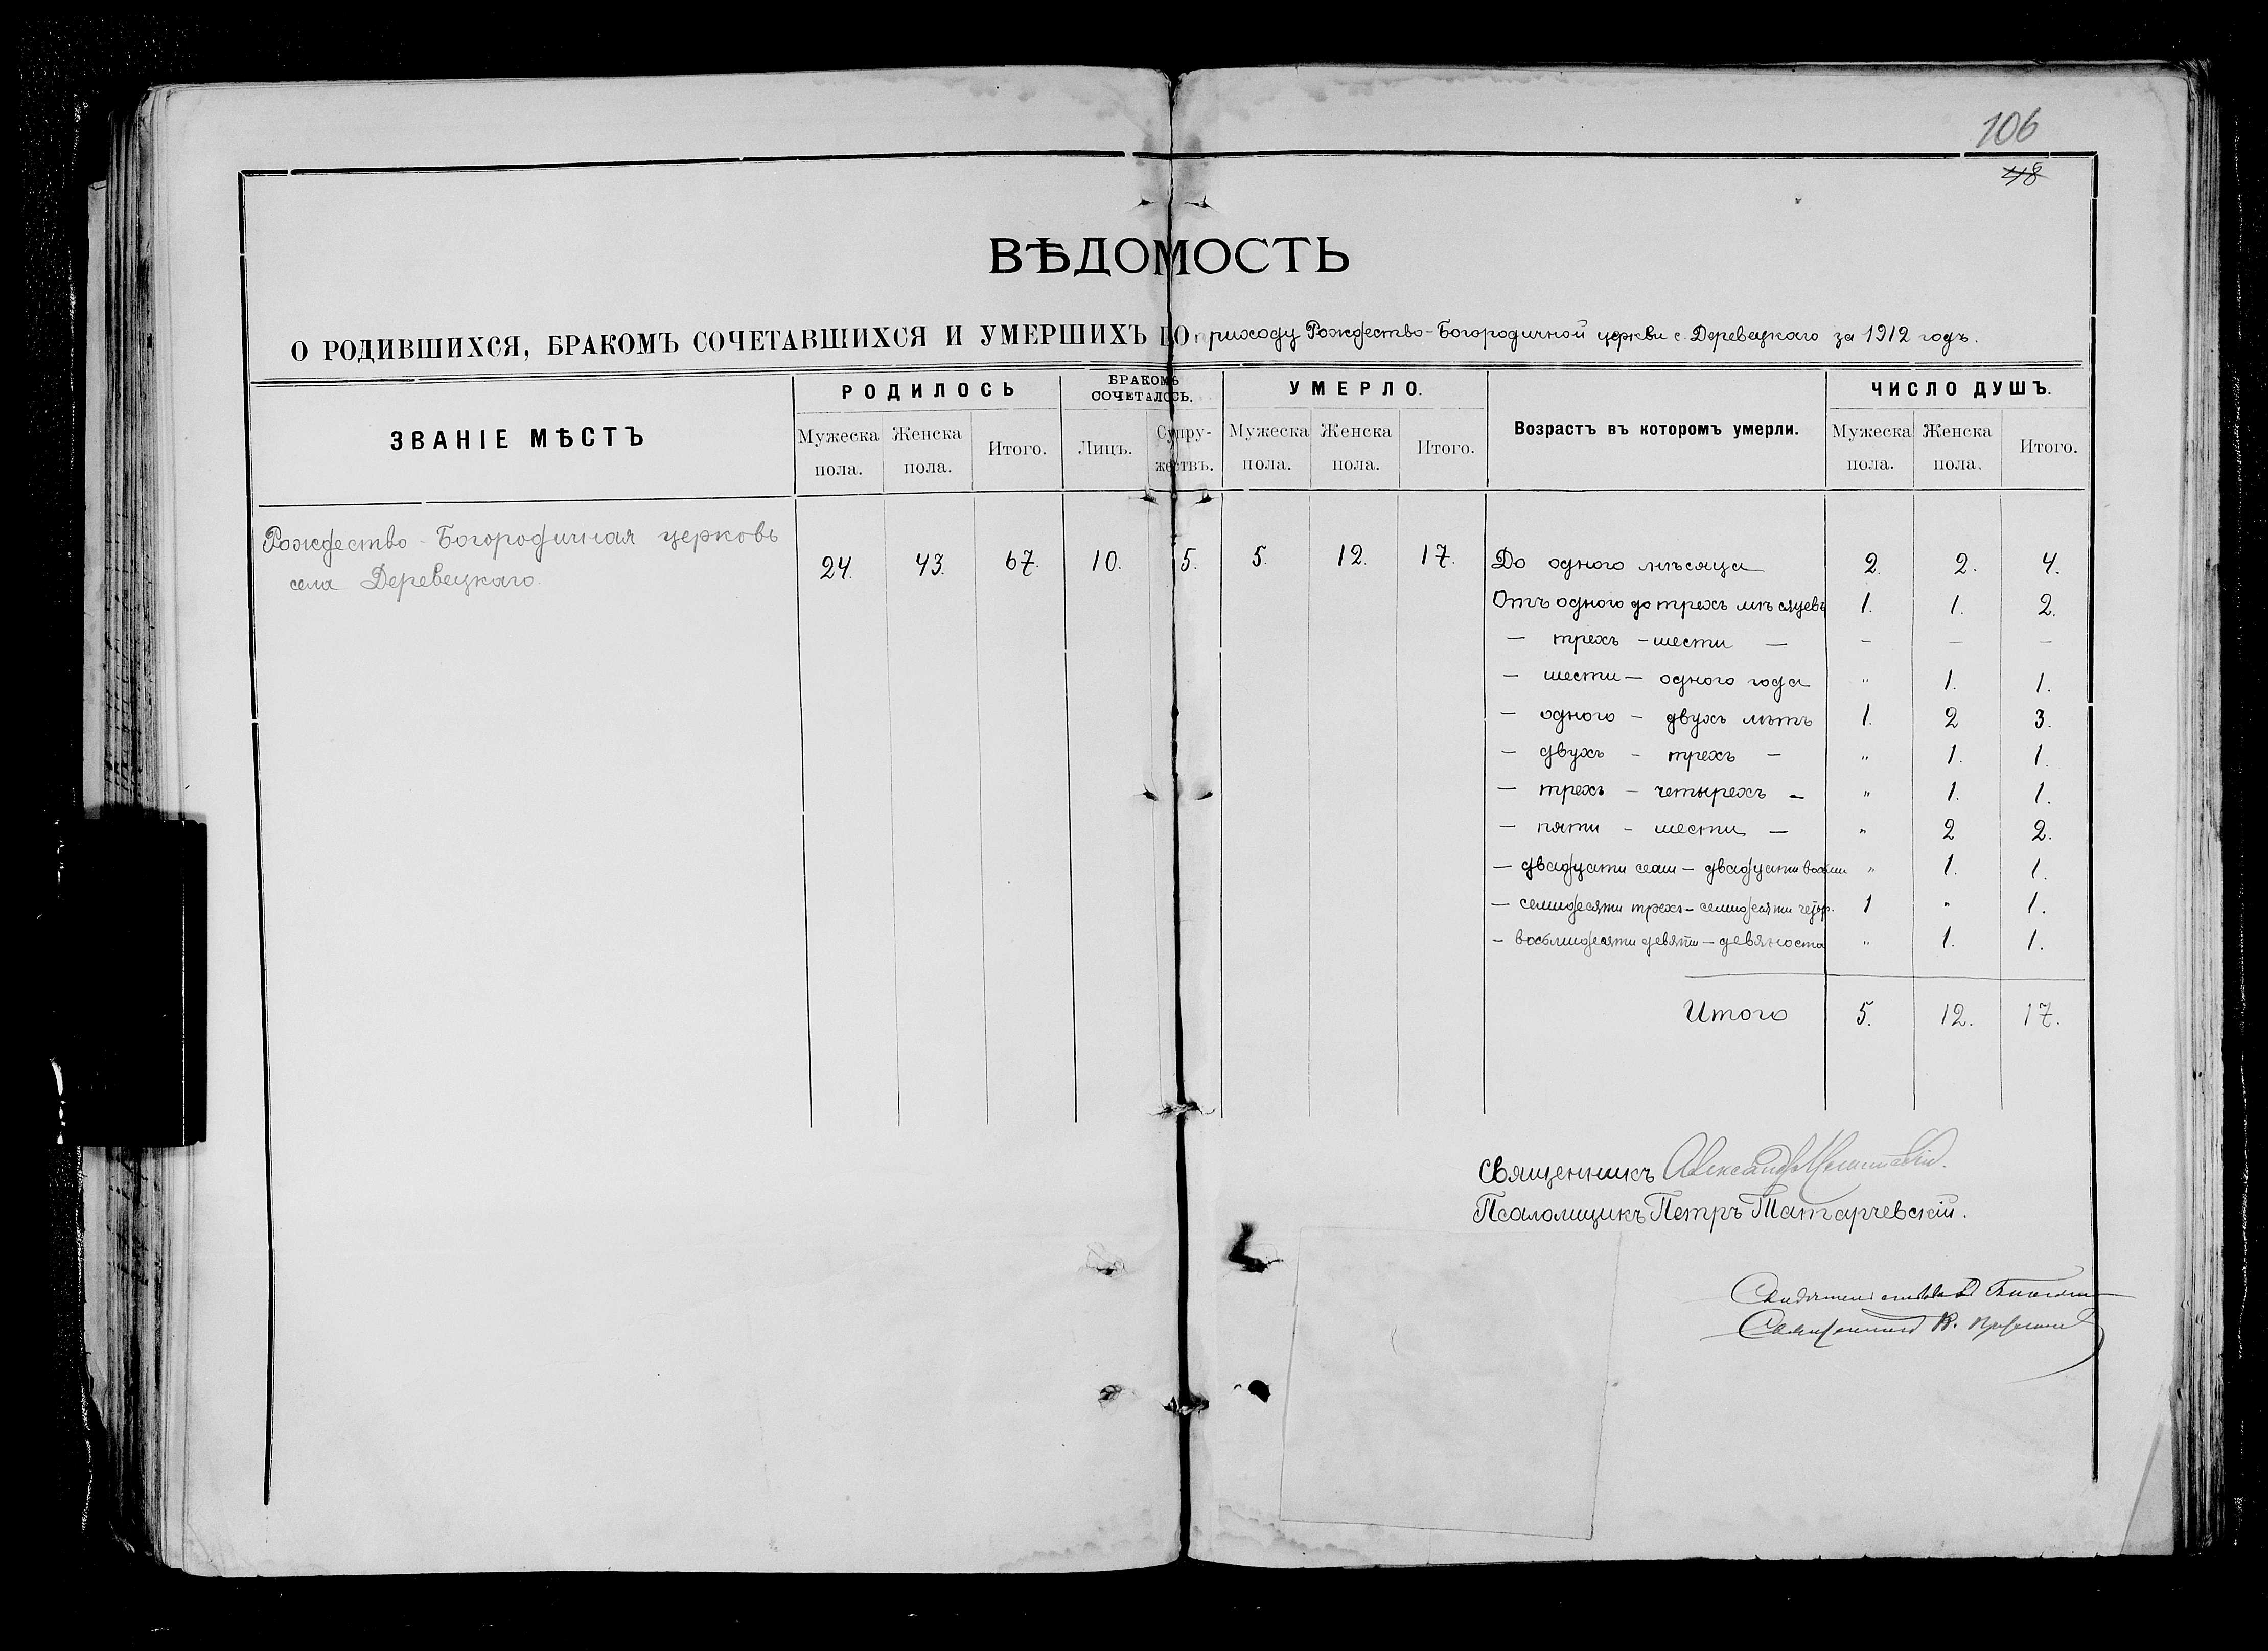 106
48
ВѢДОМОСТЬ
О РОДИВШИХСЯ, БРАКОМЪ СОЧЕТАВШИХСЯ И УМЕРШИХЪ ПО приходу Рождество-Богородичной церкви с. Деревецкаго за 1912 годъ.
ЗВАНІЕ МѢСТЪ
РОДИЛОСЬ
Мужеска пола.
Женска пола.
Итого.
БРАКОМЪ СОЧЕТАЛОСЬ.
Лицъ.
Супру-
жествъ.
УМЕРЛО.
Мужеска пола.
Женска пола.
Итого.
Возрастъ въ которомъ умерли.
ЧИСЛО ДУШЪ.
Мужеска пола.
Женска пола.
Итого.
Рождество-Богородичная церковь
села Деревецкаго.
24. 43. 67. 10. 5. 5. 12. 17.
До одного мѣсяца 2. 2. 4.
Отъ одного до трехъ мѣсяцевъ 1. 1. 2.
— трехъ — шести — — — —
— шести — одного года " 1. 1.
— одного — двухъ лѣтъ 1. 2 3.
— двухъ — трехъ — " 1. 1.
— трехъ — четырехъ — " 1. 1.
— пяти — шести — " 2 2.
— двадцати семи — двадцати восьми " 1. 1.
— семидесяти трехъ — семидесяти четыр. 1 " 1.
— восьмидесяти девяти — девяноста " 1. 1.
Итого 5. 12. 17.
Священникъ Александръ
Псаломщикъ Петръ Татарчевскій.
Священникъ